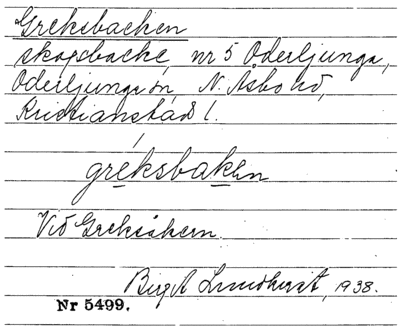 Greksbacken
skogsbacke, nr 5 Oderljunga,
Oderljunga sn N. Åsbo hd,
Kristianstads l.
greksbaken
Vid Greksåkern.
Birgit Lundkvist, 1938.
Nr 5499.